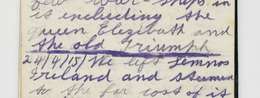 few war ships in
it encluding the
queen Elezibath and
the old Triumph
24/4/15/ We left Lemnos
Eriland and steamen
to the far cost of it